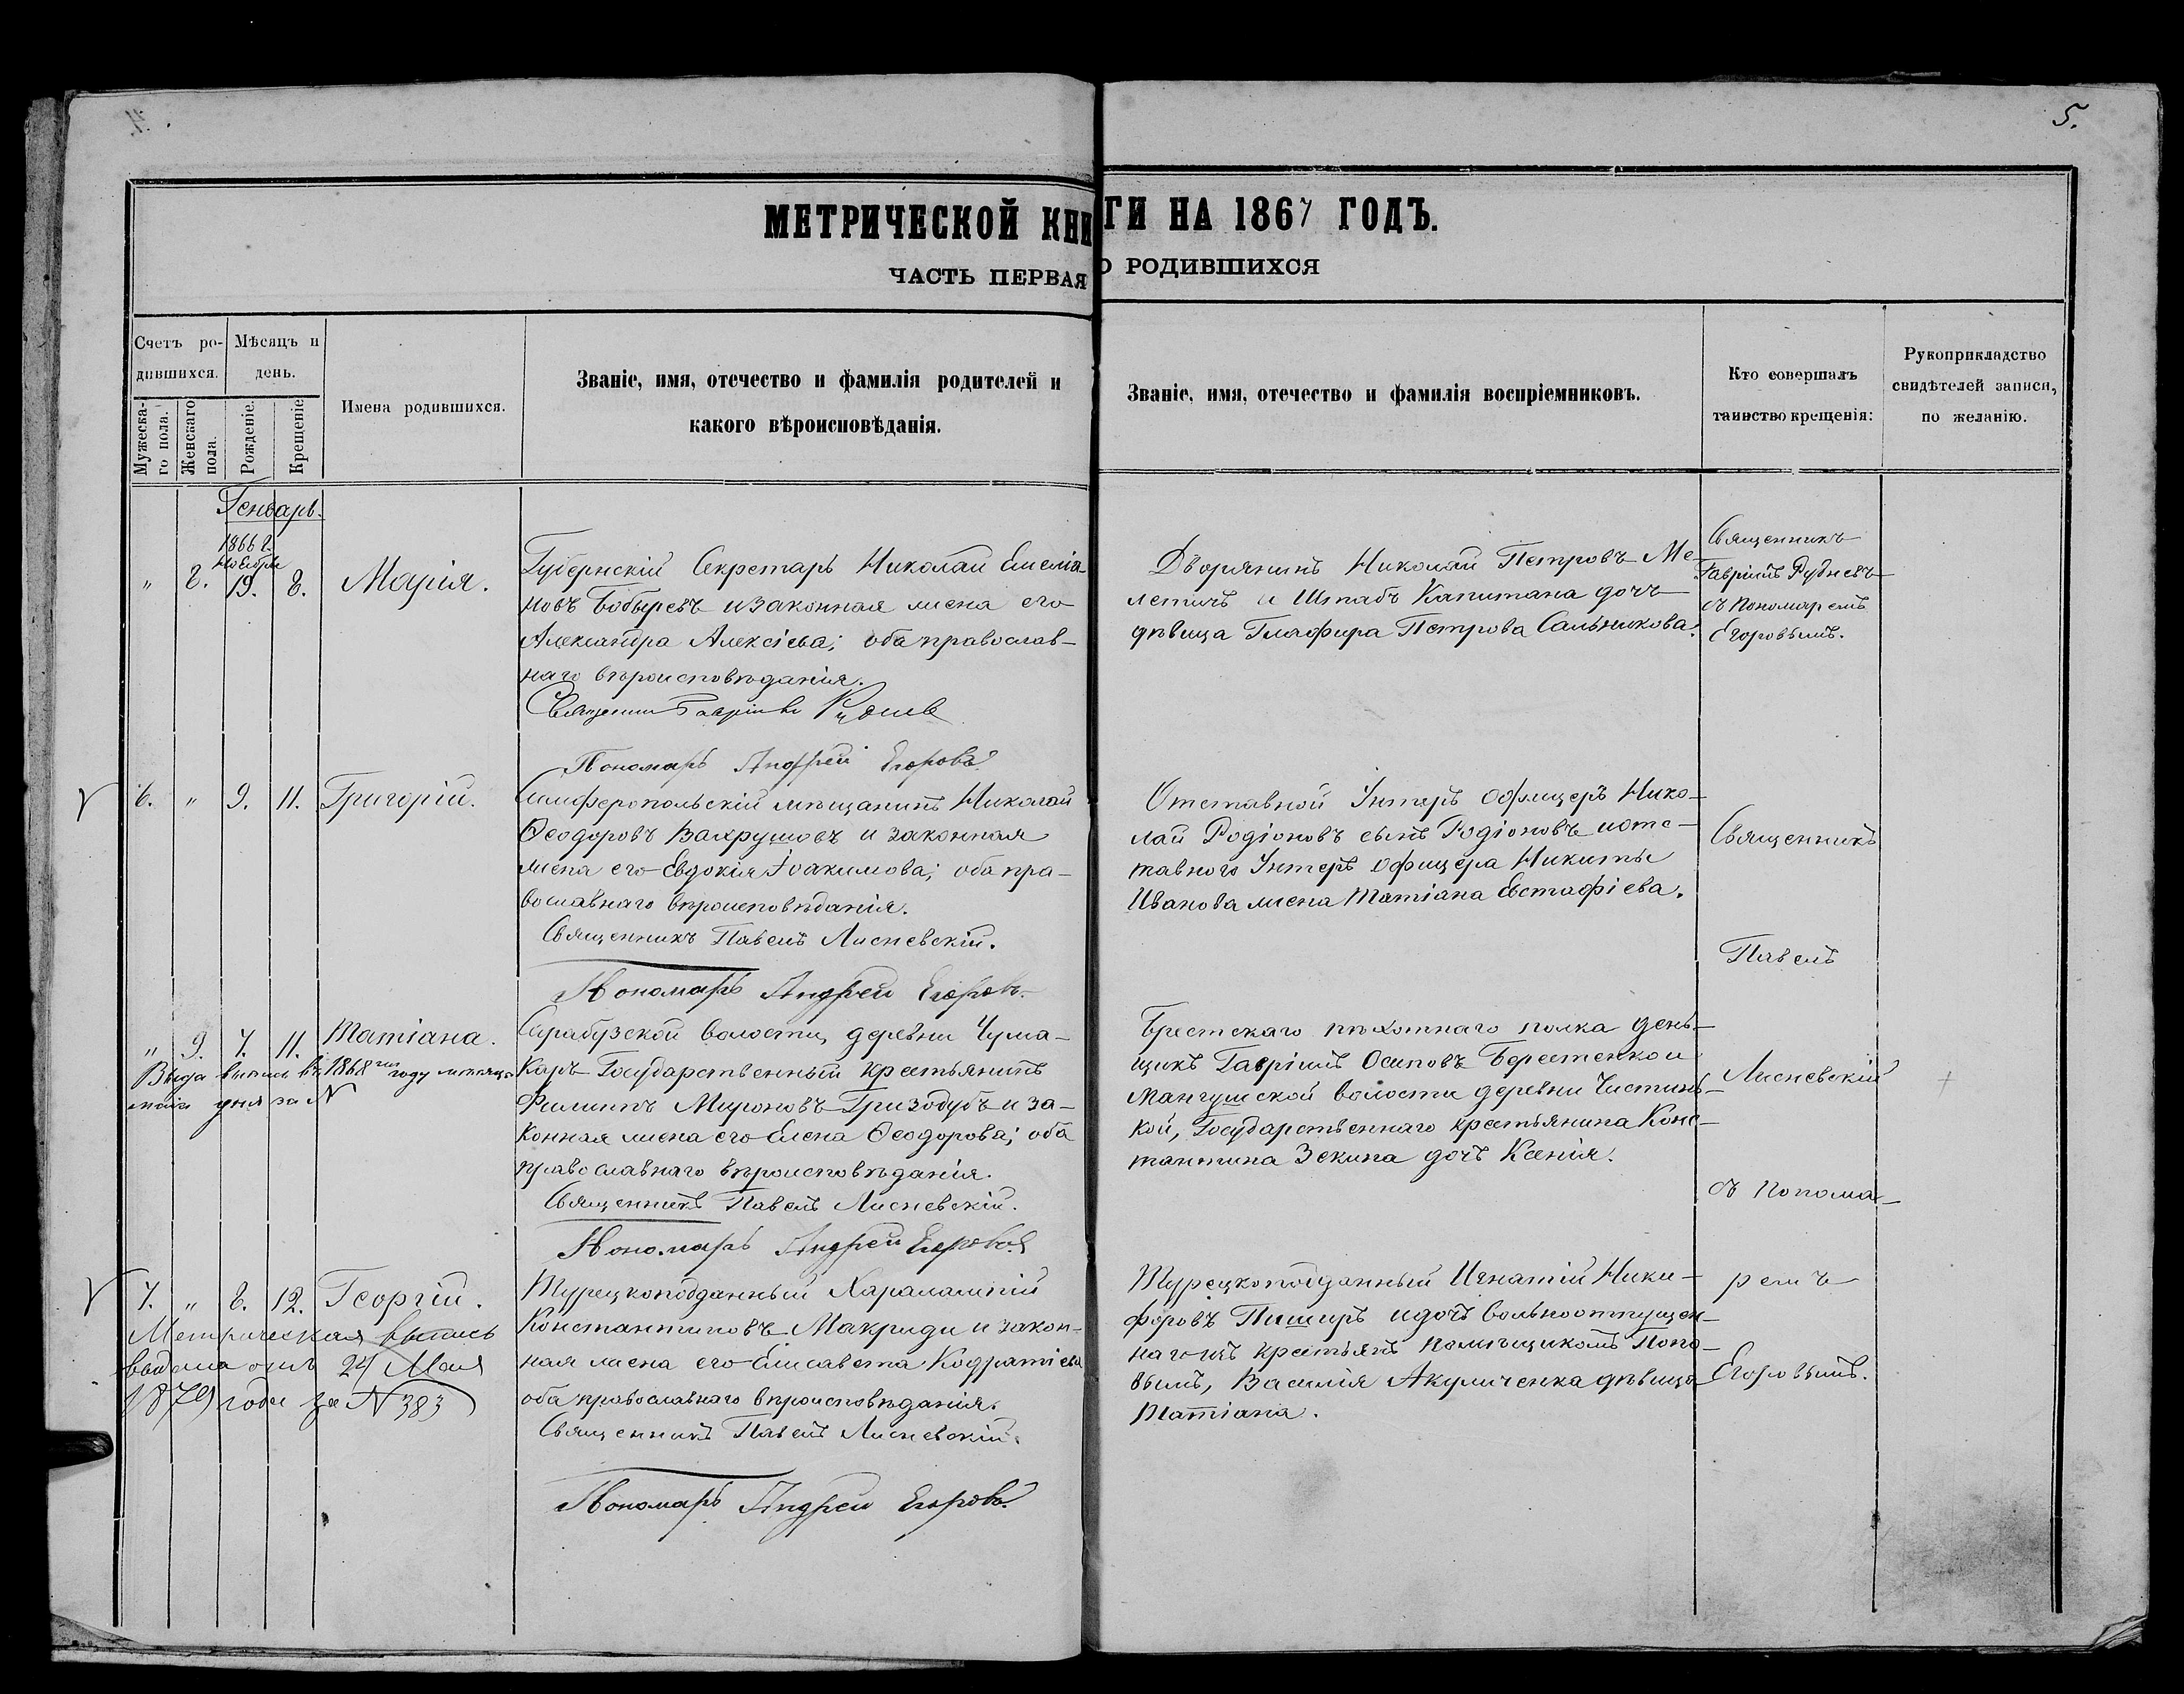 4.
5.
МЕТРИЧЕСКОЙ КНИГИ НА 1867 ГОДЪ.
ЧАСТЬ ПЕРВАЯ О РОДИВШИХСЯ
Счетъ ро-
дившихся.
Мужеска-
го пола.
Женскаго
пола.
Мѣсяцъ и
день.
Рожденіе.
Крещеніе
Имена родившихся.
Званіе, имя, отечество и фамилія родителей и
какого вѣроисповѣданія.
Званіе, имя, отечество и фамилія воспріемниковъ.
Кто совершалъ
таинство крещенія:
Рукоприкладство
свидѣтелей записи,
по желанію.
Генварь.
1866 г.
Ноября
" 8. 19. 8. Марія.
Губернскій Секретарь Николай Емелiа-
новъ Бобыревъ и законная жена его
Александра Алексіева; оба православ-
наго вѣроисповѣданія.
Священникъ Гавріилъ Рудневъ
Пономарь Андрей Егоровъ
Дворянинъ Николай Петровъ Ме-
летичъ и Штабъ Капитана дочь
дѣвица Глафира Петрова Сальникова.
Священникъ
Гавріилъ Рудневъ
съ Пономаремъ
Егоровымъ.
6. " 9. 11. Григорій.
Симферопольскій мѣщанинъ Николай
Ѳеодоровъ Вахрушовъ и законная
жена его Евдокія Іоакимова; оба пра-
вославнаго вѣроисповѣданія.
Священникъ Павелъ Лисневскій.
Пономарь Андрей Егоровъ
Отставной Унтеръ Офицеръ Нико-
лай Родіоновъ сынъ Родіоновъ и отс-
тавного Унтеръ Офицера Никиты
Иванова жена Татіана Евстафіева.
Священникъ
Павелъ
" 9. 7. 11. Татіана.
Выда выпись въ 1868 году мѣсяца
маія дня за N
Сарабузской волости, деревни Чума-
каръ Государственный крестьянинъ
Филиппъ Мироновъ Гризодубъ и за-
конная жена его Елена Ѳеодорова; оба
православнаго вѣроисповѣданія.
Священникъ Павелъ Лисневскій.
Пономарь Андрей Егоровъ
Брестскаго пѣхотнаго полка день-
щикъ Гавріилъ Осиповъ Берестенко и
Мангушской волости деревни Чистинь-
кой, Государственнаго крестьянина Конс-
тантина Зекина дочь Ксенія.
Лисневскій
съ Понома-
7. " 8. 12. Георгій.
Метрическая выпись
выдана отъ 24 Мая
1879 года за N 383
Турецкоподданный Харалампій
Константиновъ Макриди и закон-
ная жена его Елисавета Кодратіева
оба православнаго вѣроисповѣданія.
Священникъ Павелъ Лисневскій.
Пономарь Андрей Егоровъ
Турецкоподданный Игнатій Ники-
форовъ Пиширъ и дочь вольноотпущен-
наго изъ крестьянъ помѣщикомъ Попо-
вымъ, Василія Акуличенка дѣвица
Татіана.
ремъ
Егоровымъ.